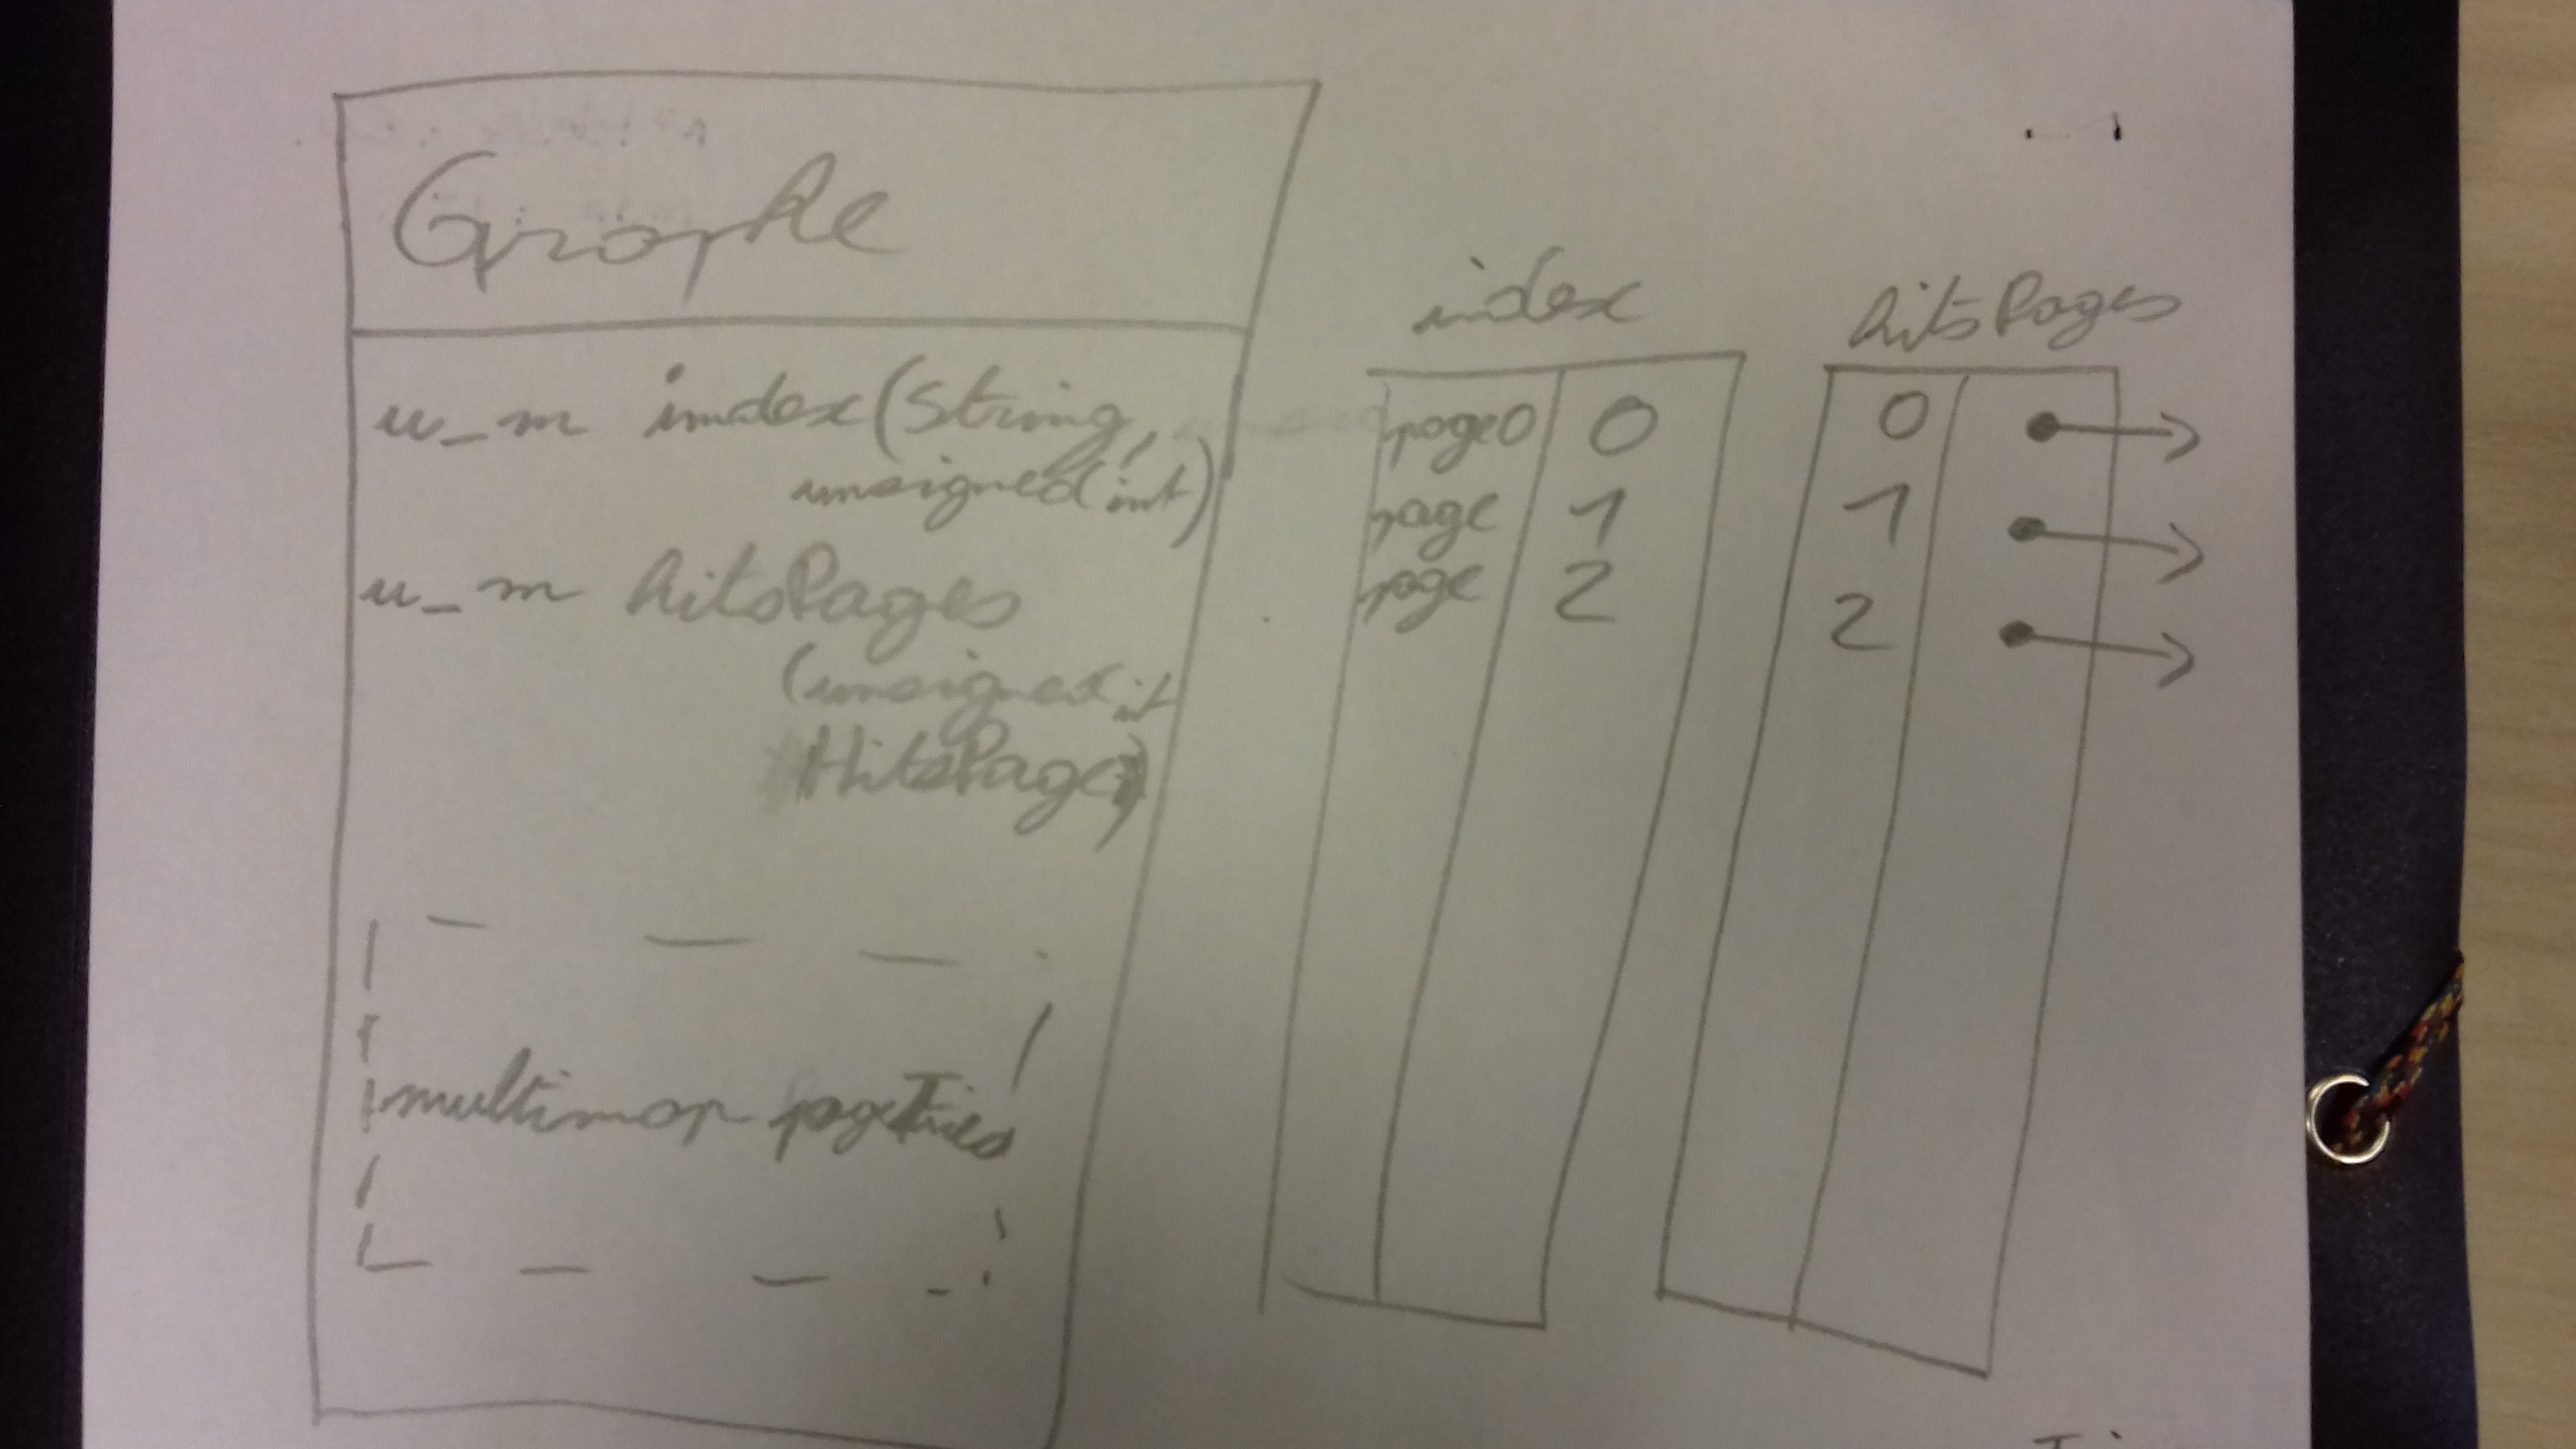 Graphe
u_m index(String,
unsigned int)
u_m hitsPages
(unsigned int
HitsPage)
multimap pageTriees
index
page0 0
page 1
page 2
hitsPages
0
1
2